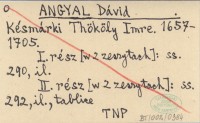 O ANGYAL Dávid
Késmárki Thököly Imre. 1657-
1705.
I. rész [w 2 zeszytach]: ss.
290, il.
II. rész [w 2 zeszytach]: ss.
292, il., tablice
TNP